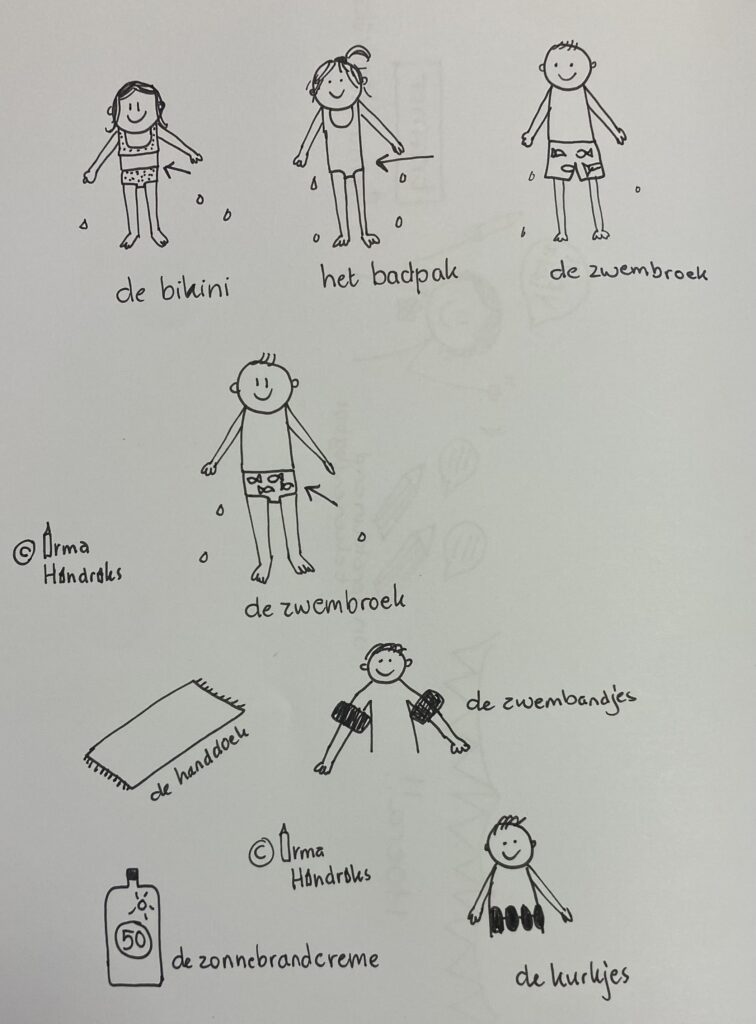 de bikini
het badpak
de zwembroek
© Irma
Hendriks
de zwembroek
de zwembandjes
de handdoek
© Irma
Hendriks
50
de zonnebrandcreme
de kurkjes